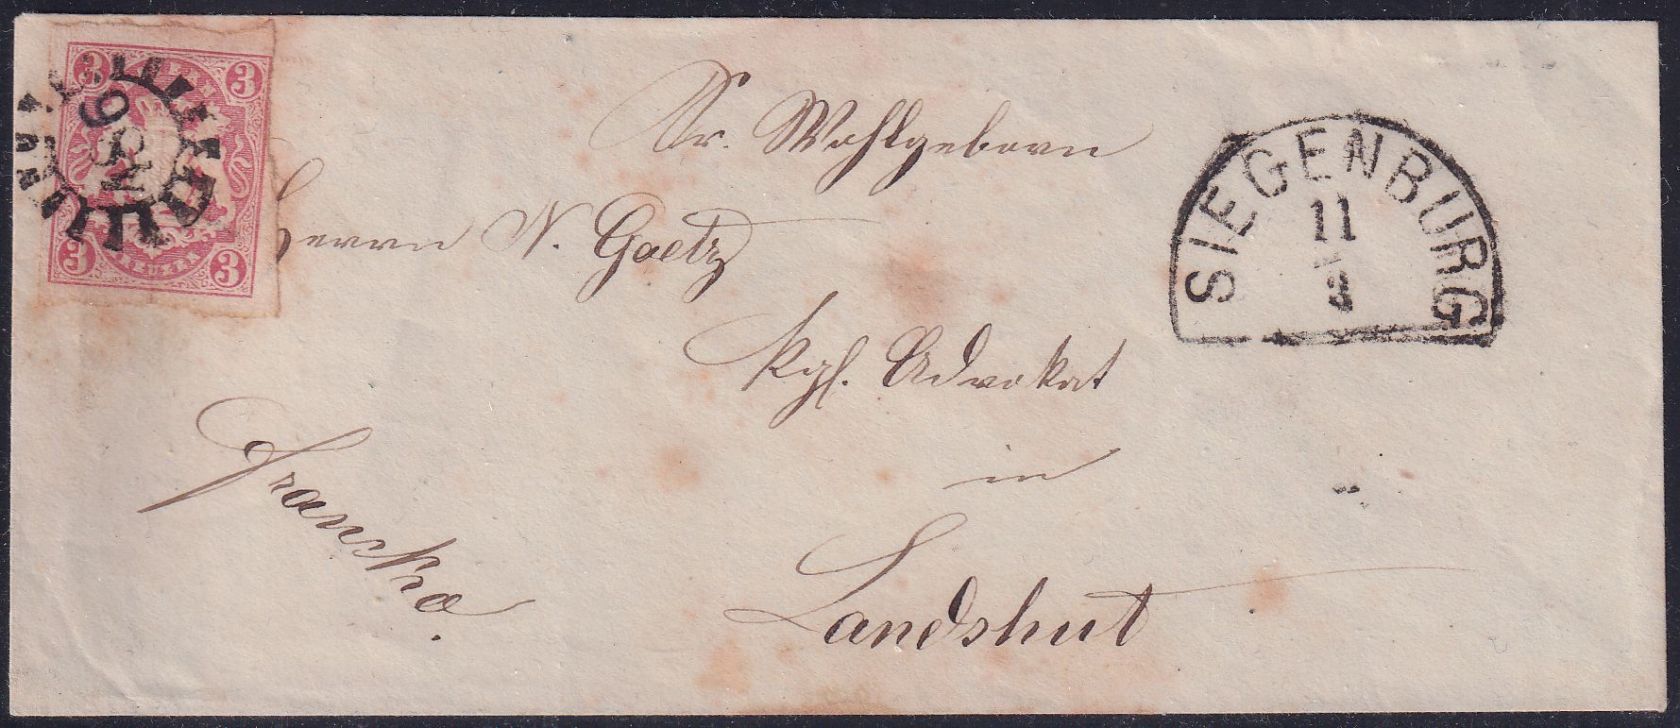 3 3
3 3
KREUZER
SIEGENBURG
11
3
Sr. Wohlgeborn
Herrn N. Goetz
Kgl. Advokat
in
Landshut
Francko.